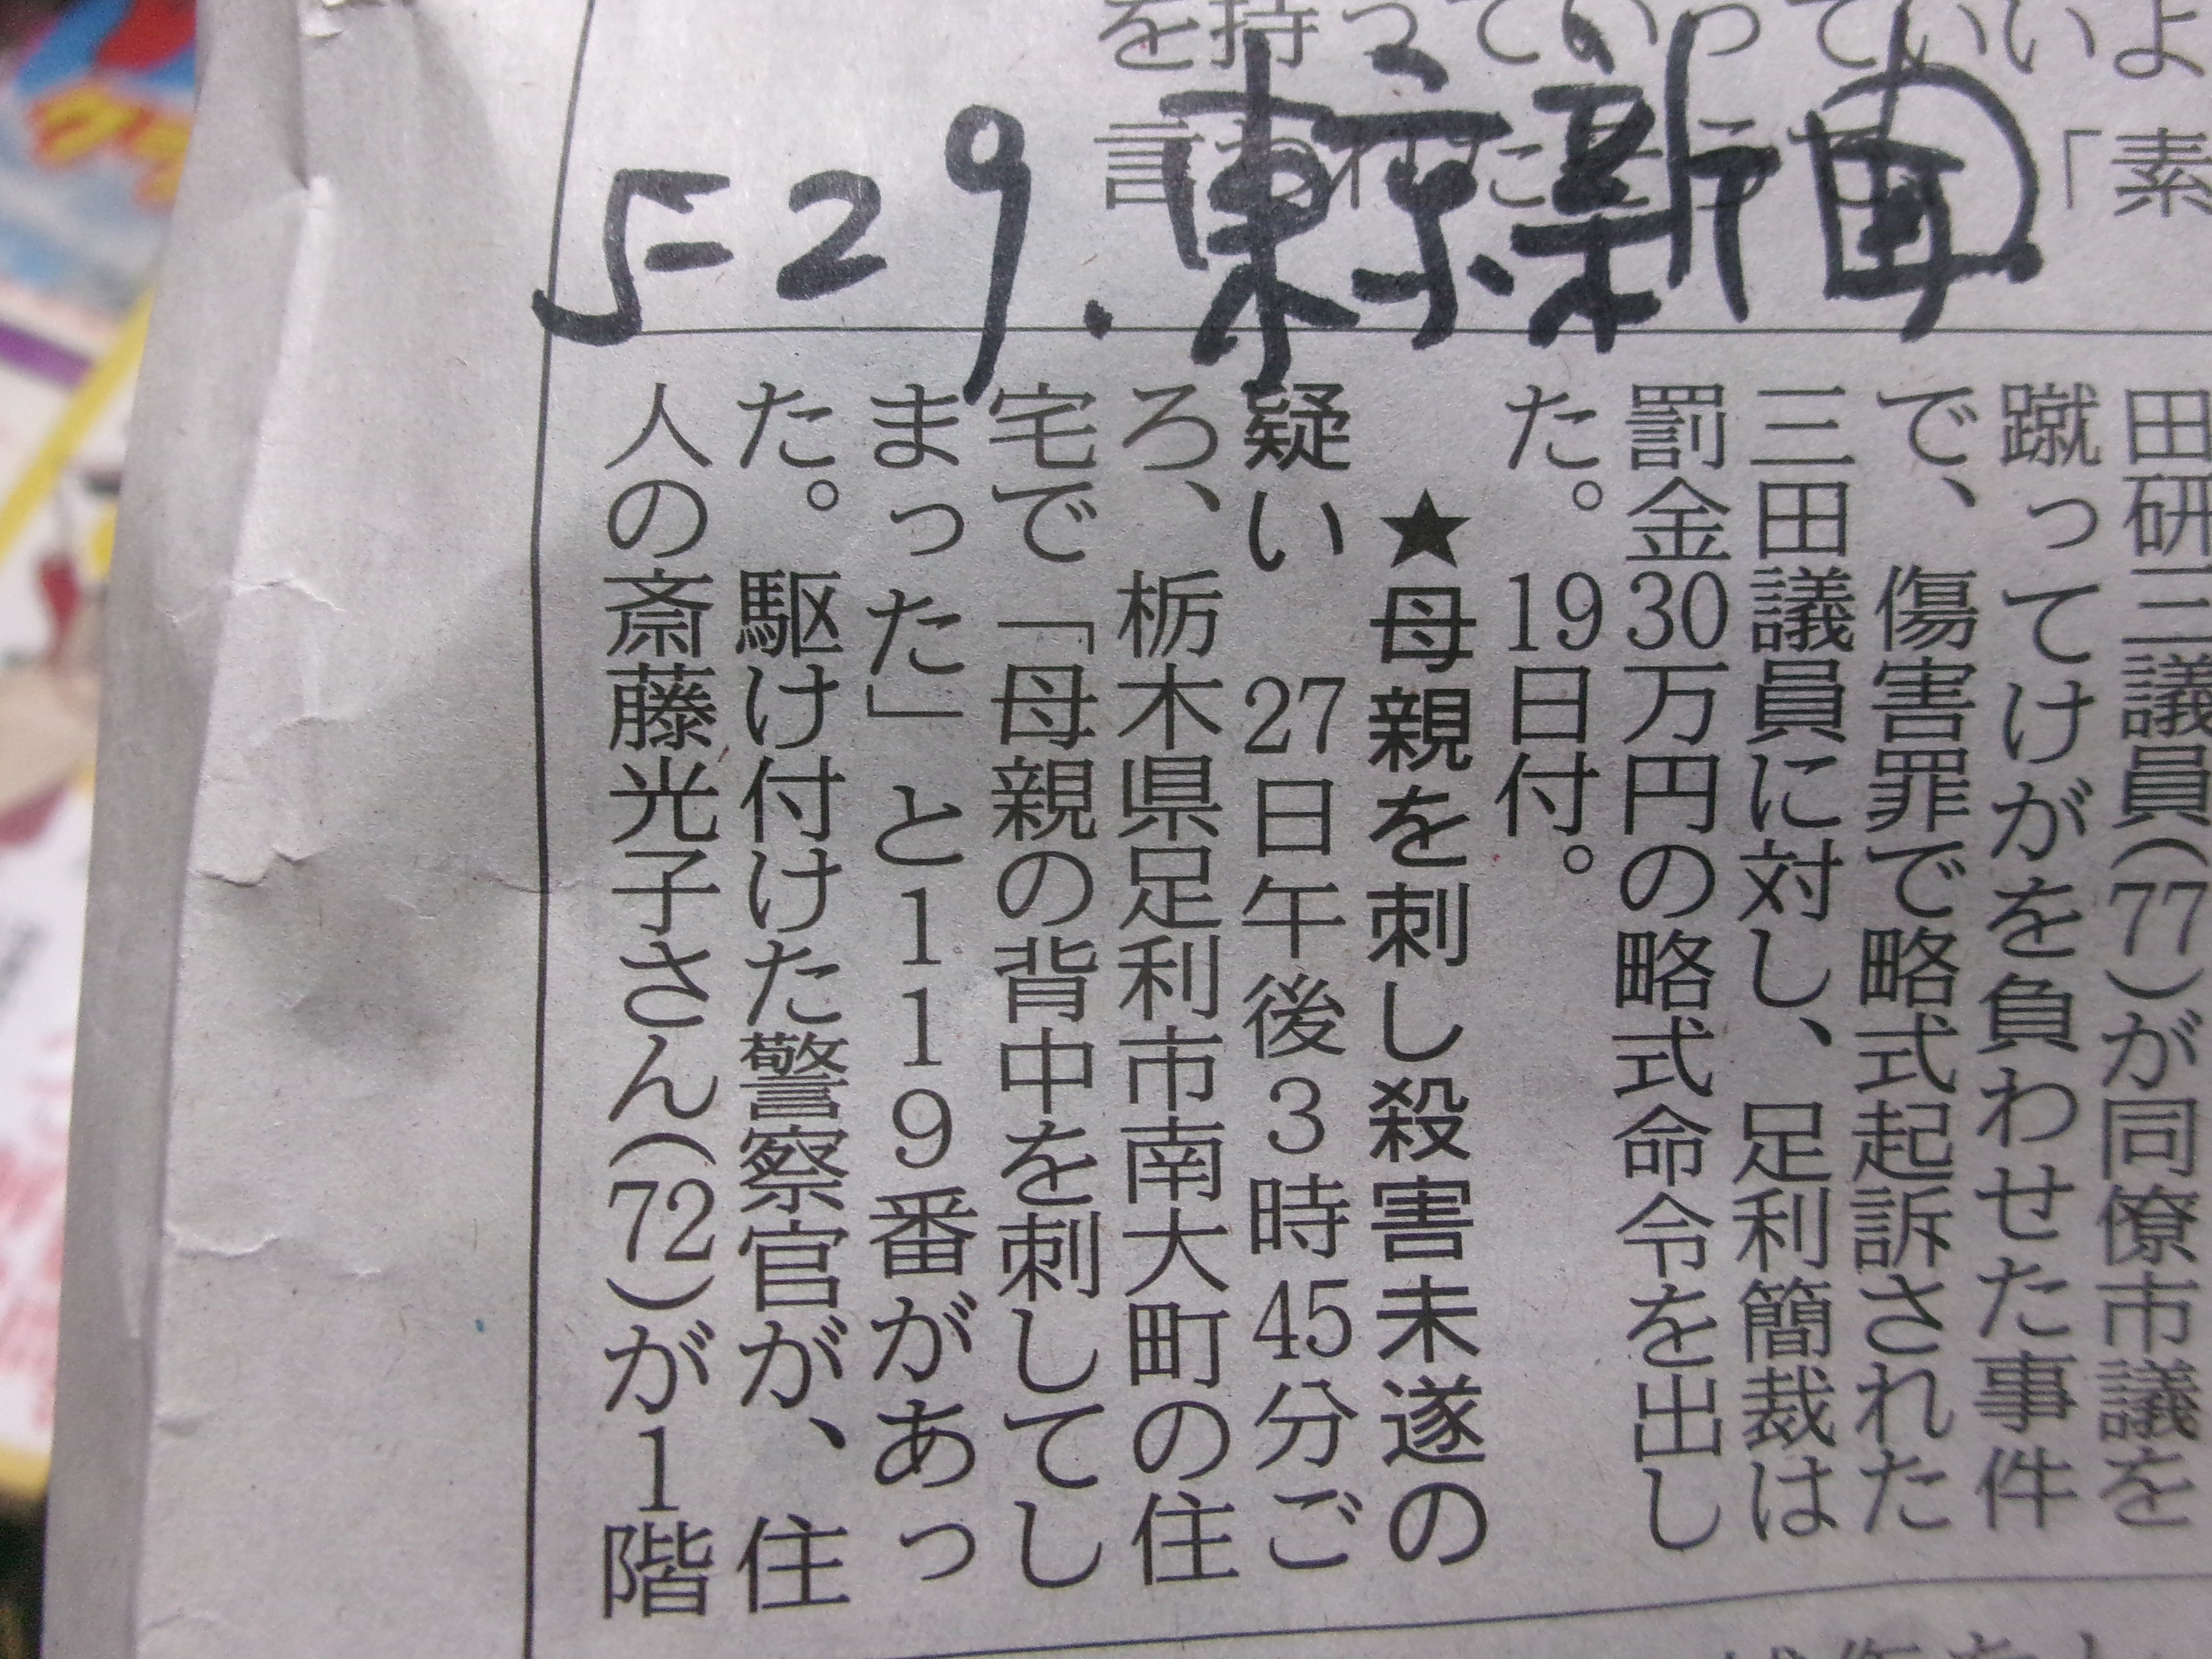 を持っていっていいよ
「素
5-29.東京新聞
田研三議員(77)が同僚市議を
蹴ってけがを負わせた事件
で、傷害罪で略式起訴された
三田議員に対し、足利簡裁は
罰金30万円の略式命令を出し
た。19日付。
★母親を刺し殺害未遂の
疑い 27日午後3時45分ご
ろ、栃木県足利市南大町の住
宅で「母親の背中を刺してし
まった」と119番があっ
た。駆け付けた警察官が、住
人の斎藤光子さん(72)が1階